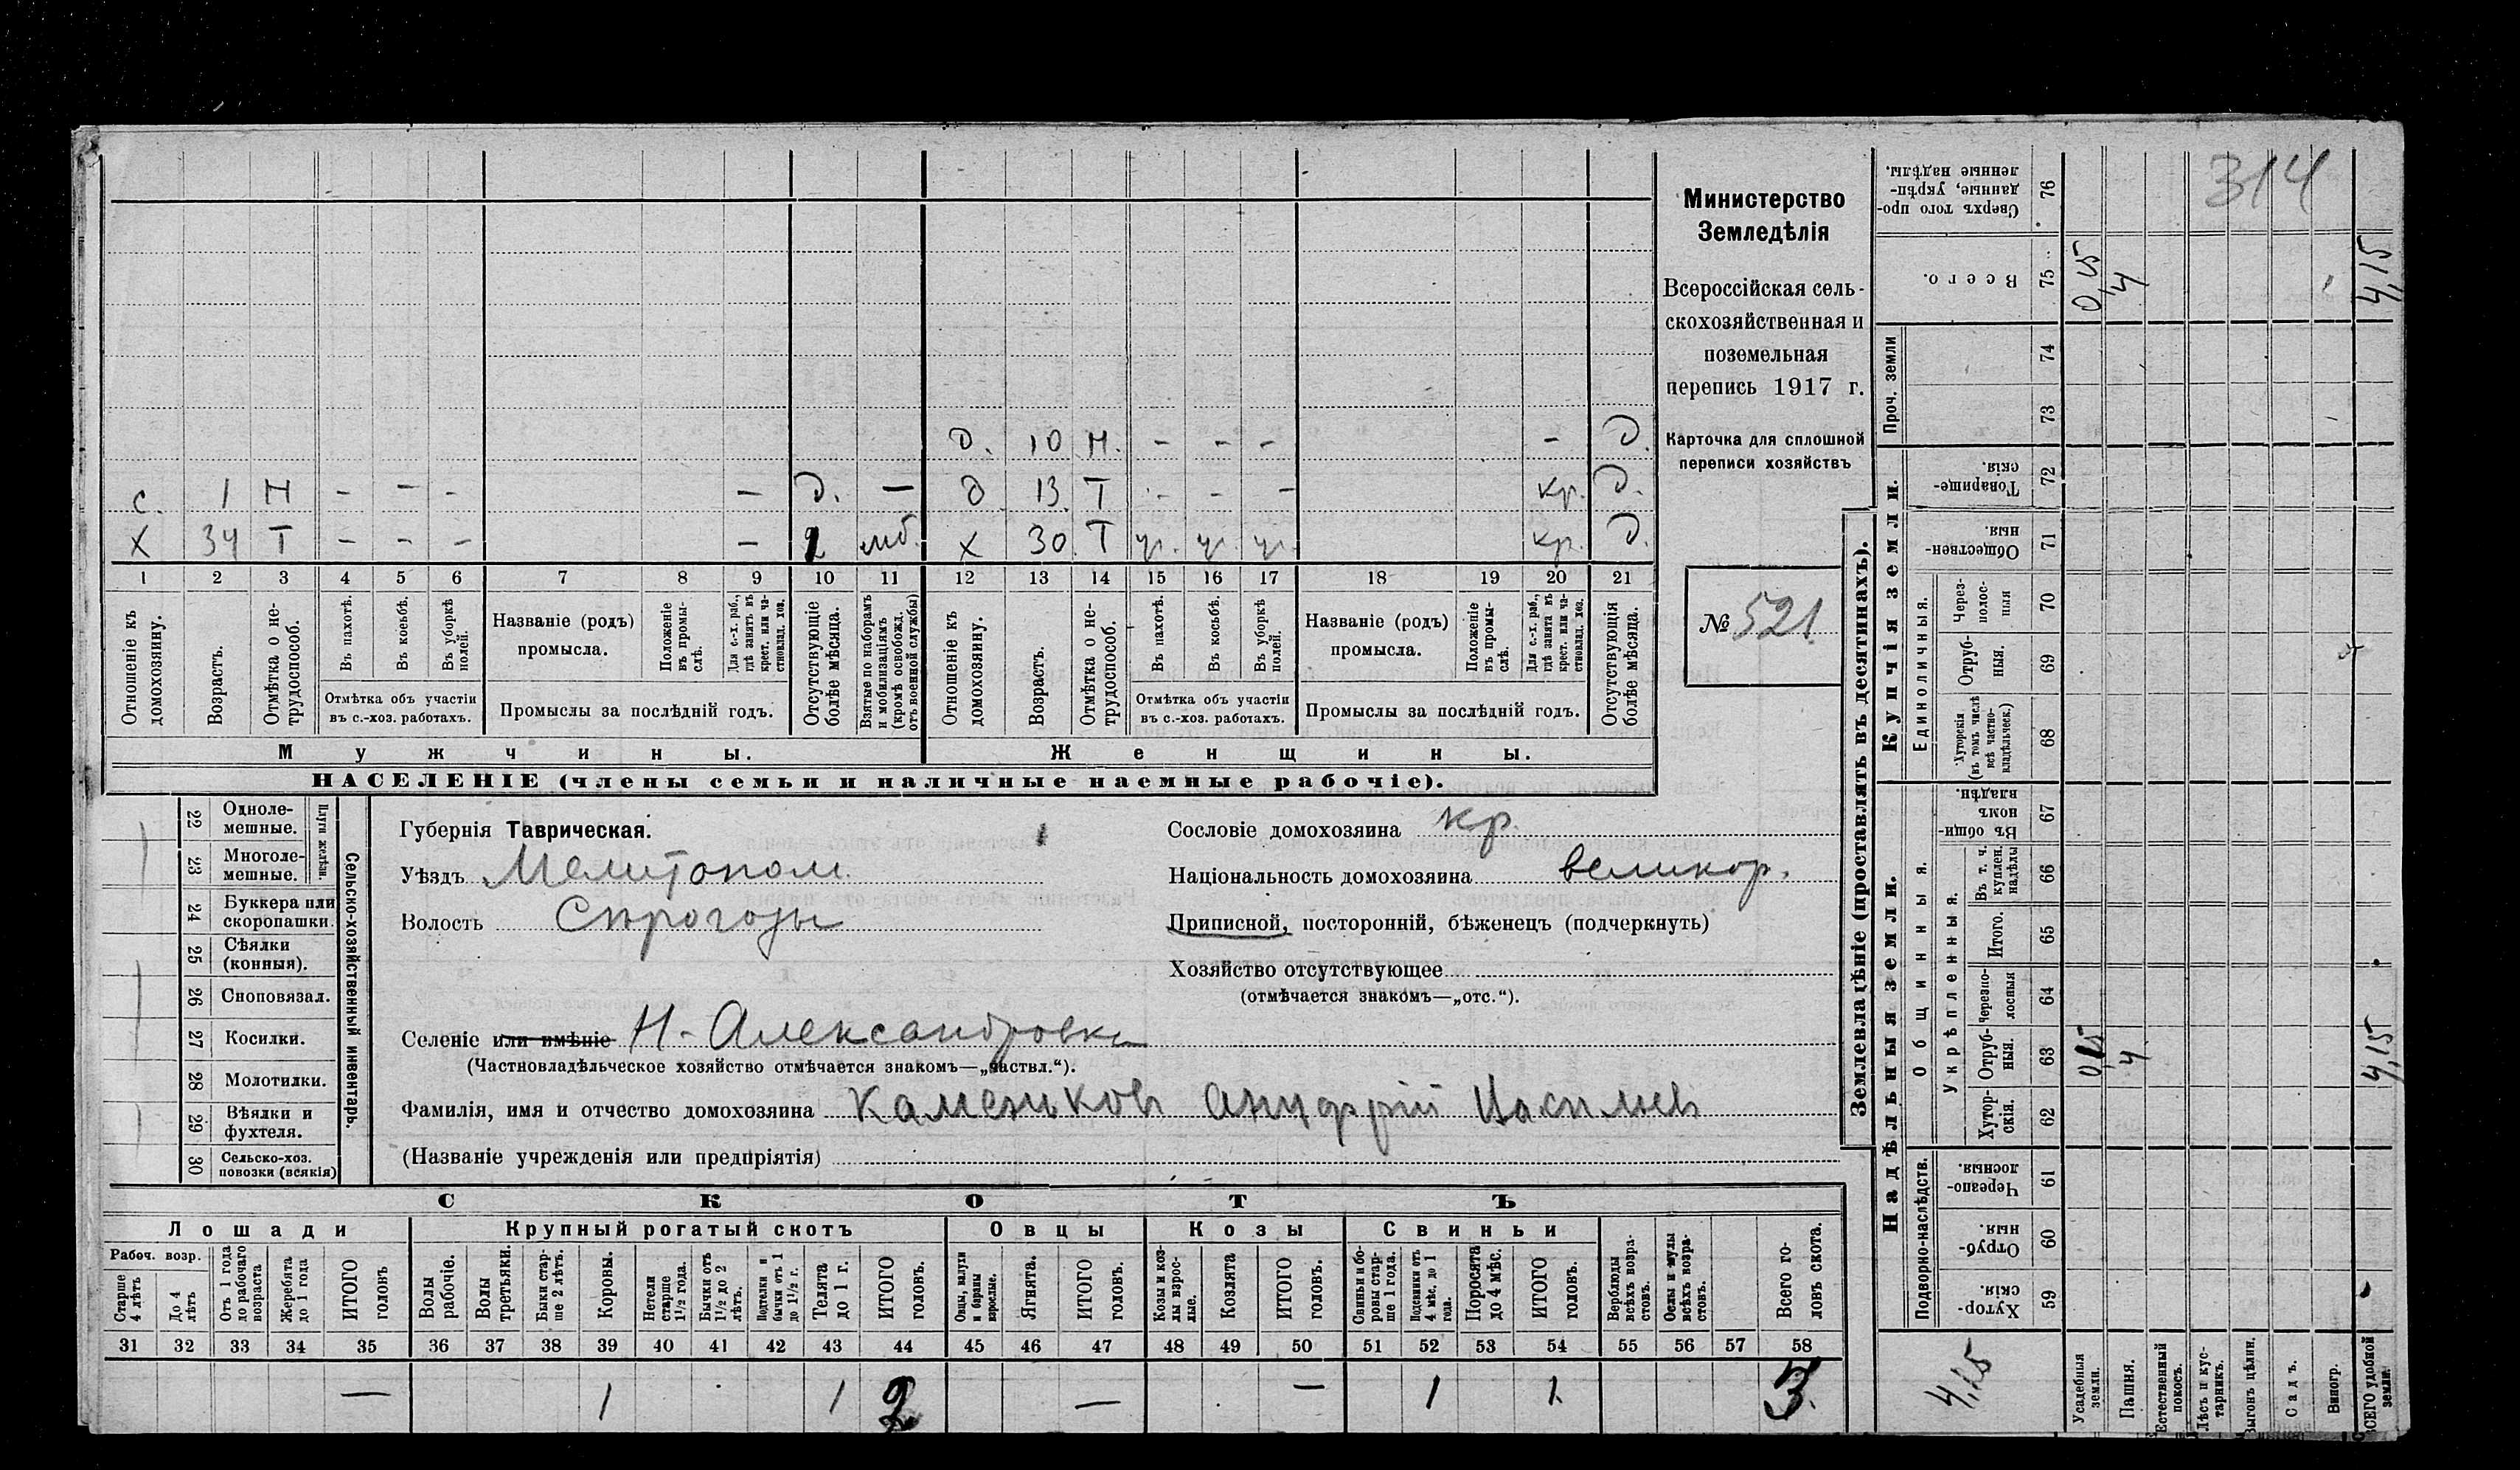 314
Министерство
Земледѣлія
Всероссійская сель-
скохозяйственная и
поземельная
перепись 1917 г.
Карточка для сплошной
переписи хозяйствъ
№ 521
Д. 10 Н. - - - - Д.
с. 1 Н - - - - Д. - д 13 Т - - - кр. Д.
х 34 Т - - - - 2 мб. х 30 Т уч. уч. уч. кр. Д.
1 2 3 4 5 6 7 8 9 10 11 12 13 14 15 16 17 18 19 20 21
Отношеніе къ домохозяину.
Возрастъ.
Отмѣтка о не-трудоспособ.
Въ пахотѣ.
Въ косьбѣ.
Въ уборкѣ полей.
Отмѣтка объ участіи
въ с.-хоз. работахъ.
Названіе (родъ)
промысла.
Положеніе въ промы-слѣ.
Для с.-х. раб., гдѣ занятъ въ крест. или ча-стновлад. хоз.
Промыслы за послѣдній годъ.
Отсутствующіе болѣе мѣсяца.
Взятые по наборамъ и мобилизаціямъ (кромѣ освобожд. отъ военной службы)
Отношеніе къ домохозяину.
Возрастъ.
Отмѣтка о не-трудоспособ.
Въ пахотѣ.
Въ косьбѣ.
Въ уборкѣ полей.
Отмѣтка объ участіи
въ с.-хоз. работахъ.
Названіе (родъ)
промысла.
Положеніе въ промы-слѣ.
Для с.-х. раб., гдѣ занята въ крест. или ча-стновлад. хоз.
Промыслы за послѣдній годъ.
Отсутствующія болѣе мѣсяца.
Мужчины. Женщины.
НАСЕЛЕНІЕ (члены семьи и наличные наемные рабочіе).
22 Одноле-мешные.
23 Многоле-мешные.
Плуги желѣзн.
24 Буккера или скоропашки.
25 Сѣялки (конныя).
26 Сноповязал.
27 Косилки.
28 Молотилки.
29 Вѣялки и фухтеля.
30 Сельско-хоз. повозки (всякія)
Сельско-хозяйственный инвентарь.
Губернія Таврическая.
Уѣздъ Мелитопол
Волость Сѣрогозы
Селеніе или имѣніе Н-Александровка
(Частновладѣльческое хозяйство отмѣчается знакомъ—„частвл.“).
Фамилія, имя и отчество домохозяина Каменьковъ Ануфрій Васильев
(Названіе учрежденія или предпріятія)
Сословіе домохозяина кр.
Національность домохозяина великор.
Приписной, посторонній, бѣженецъ (подчеркнуть)
Хозяйство отсутствующее
(отмѣчается знакомъ—„отс.“).
СКОТЪ
Лошади Крупный рогатый скотъ Овцы Козы Свиньи
Рабоч. возр.
Старше 4 лѣтъ
До 4 лѣтъ
Отъ 1 года до рабочаго возраста
Жеребята до 1 года
ИТОГО головъ
Волы рабочіе.
Волы третьяки.
Быки стар-ше 2 лѣтъ.
Коровы.
Нетели старше 1½ года.
Бычки отъ 1½ до 2 лѣтъ.
Подтелки и бычки отъ 1 до 1½ г.
Телята до 1 г.
ИТОГО головъ.
Овцы, валухи и бараны взрослые.
Ягнята.
ИТОГО головъ.
Козы и коз-лы взрос-лые.
Козлята
ИТОГО головъ.
Свиньи и бо-ровы стар-ше 1 года.
Подсвинки отъ 4 мѣс. до 1 года.
Поросята до 4 мѣс.
ИТОГО головъ.
Верблюды всѣхъ возра-стовъ.
Ослы и мулы всѣхъ возра-стовъ.
Всего го-ловъ скота.
31 32 33 34 35 36 37 38 39 40 41 42 43 44 45 46 47 48 49 50 51 52 53 54 55 56 57 58
— 1 1 2 — — 1 1 3
Землевладѣніе (проставлять въ десятинахъ).
Сверхъ того про-данные, укрѣп-ленные надѣлы. 76
Всего. 75 0,15 4 4,15
Проч. земли 74 73
Купчія земли.
Товарище-скія. 72
Обществен-ныя 71
Единоличныя.
Через-полос-ныя 70
Отруб-ныя. 69
Хуторскія (въ томъ числѣ всѣ частно-владѣльческ.) 68
Надѣльныя земли.
Общинныя.
Въ общи-номъ владѣн. 67
Укрѣпленныя.
Въ т. ч. куплен. надѣлы 66
Итого. 65
Черезпо-лосныя 64
Отруб-ныя. 63 0,15 4 4,15
Хутор-скія. 62
Подворно-наслѣдств.
Черезпо-лосныя. 61
Отруб-ныя. 60
Хутор-скія. 59
4,15
Усадебныя земли.
Пашня.
Естественный покосъ.
Лѣсъ и кус-тарникъ.
Выгонъ цѣлин.
Садъ.
Виногр.
ВСЕГО удобной земли.